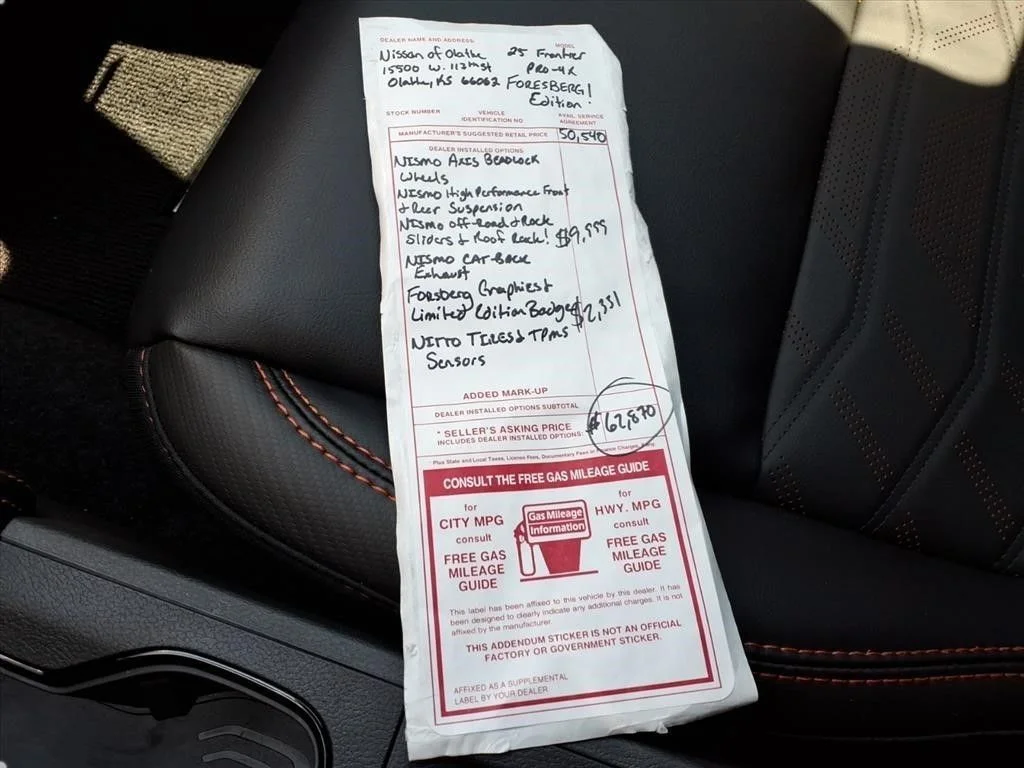 DEALER NAME AND ADDRESS
MODEL
Nissan of Olathe 25 Frontier
15500 W. 117th St PRO-4X
Olathe, KS 66062 FORESBERG!
Edition!
STOCK NUMBER VEHICLE IDENTIFICATION NO AVAIL SERVICE AGREEMENT
MANUFACTURER'S SUGGESTED RETAIL PRICE 50,540
DEALER INSTALLED OPTIONS
NISMO AXIS BEADLOCK
Wheels
NISMO High Performance Front
& Rear Suspension
NISMO off-Road & Rock
Sliders & Roof Rack! $9,999
NISMO CAT-BACK
Exhaust
Forsberg Graphics &
Limited Edition Badges $2,331
NITTO TIRES & TPMS
Sensors
ADDED MARK-UP
DEALER INSTALLED OPTIONS SUBTOTAL
* SELLER'S ASKING PRICE $62,870
INCLUDES DEALER INSTALLED OPTIONS:
Plus State and Local Taxes, License Fees, Documentary Fees or Finance Charges, if any
CONSULT THE FREE GAS MILEAGE GUIDE
for
CITY MPG
consult
FREE GAS
MILEAGE
GUIDE
Gas Mileage
Information
for
HWY. MPG
consult
FREE GAS
MILEAGE
GUIDE
This label has been affixed to this vehicle by this dealer. It has
been designed to clearly indicate any additional charges. It is not
affixed by the manufacturer.
THIS ADDENDUM STICKER IS NOT AN OFFICIAL
FACTORY OR GOVERNMENT STICKER.
AFFIXED AS A SUPPLEMENTAL
LABEL BY YOUR DEALER